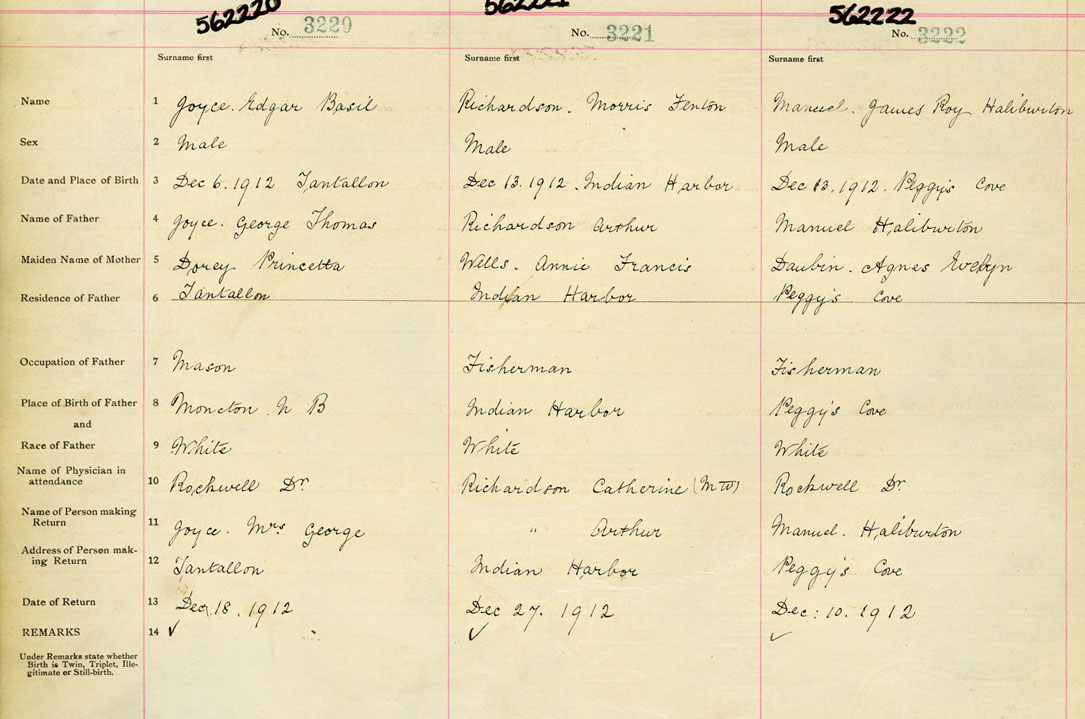 562220 562221 562222
No. 3220 No. 3221 No. 3222
Surname first Surname first Surname first
Name 1 Joyce. Edgar Basil Richardson. Morris Fenton Manuel. James Roy Haliburton
Sex 2 Male Male Male
Date and Place of Birth 3 Dec 6. 1912 Tantallon Dec 13. 1912. Indian Harbor Dec 13. 1912. Peggy's Cove
Name of Father 4 Joyce. George Thomas Richardson Arthur Manuel Haliburton
Maiden Name of Mother 5 Dorey Princetta Wells. Annie Francis Daubin. Agnes Evelyn
Residence of Father 6 Tantallon Indian Harbor Peggy's Cove
Occupation of Father 7 Mason Fisherman Fisherman
Place of Birth of Father 8 Moncton. N B Indian Harbor Peggy's Cove
and
Race of Father 9 White White White
Name of Physician in
attendance 10 Rockwell Dr Richardson Catherine (MW) Rockwell Dr
Name of Person making
Return 11 Joyce. Mrs George " Arthur Manuel. Haliburton
Address of Person mak-
ing Return 12 Tantallon Indian Harbor Peggy's Cove
Date of Return 13 Dec 18. 1912 Dec 27. 1912 Dec: 10. 1912
REMARKS 14 ✓ ✓ ✓
Under Remarks state whether
Birth is Twin, Triplet, Ille-
gitimate or Still-birth.